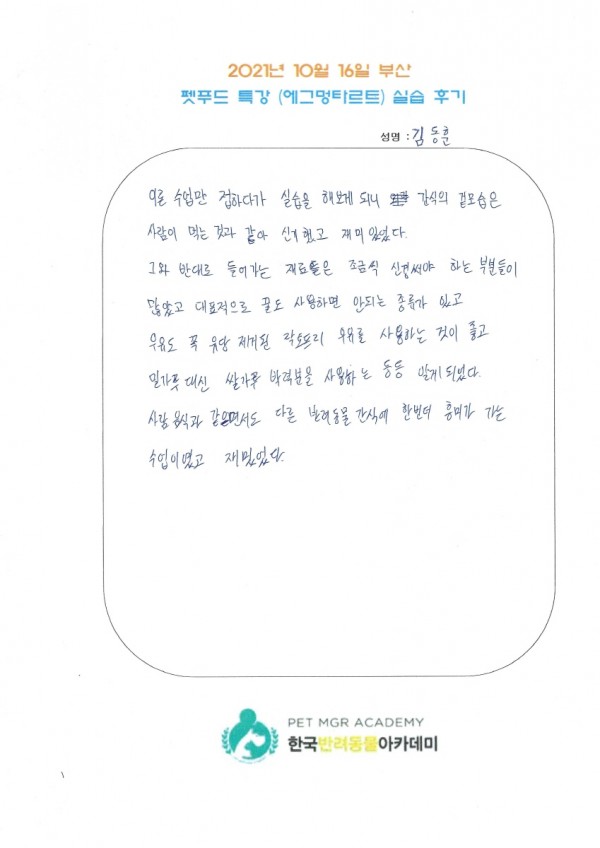 2021년 10월 16일 부산
펫푸드 특강 (에그멍타르트) 실습 후기
성명 : 김동훈
이론 수업만 접하다가 실습을 해보게 되니 간식의 겉모습은
사람이 먹는 것과 같아 신기했고 재미있었다.
그와 반대로 들어가는 재료들은 조금씩 신경써야 하는 부분들이
많았고 대표적으로 꿀도 사용하면 안되는 종류가 있고
우유도 꼭 유당 제거된 락토프리 우유로 사용하는 것이 좋고
밀가루 대신 쌀가루 박력분을 사용하는 등등 알게되었다.
사람 음식과 같으면서도 다른 반려동물 간식에 한번더 흥미가 가는
수업이였고 재밌었다.
PET MGR ACADEMY
한국반려동물아카데미